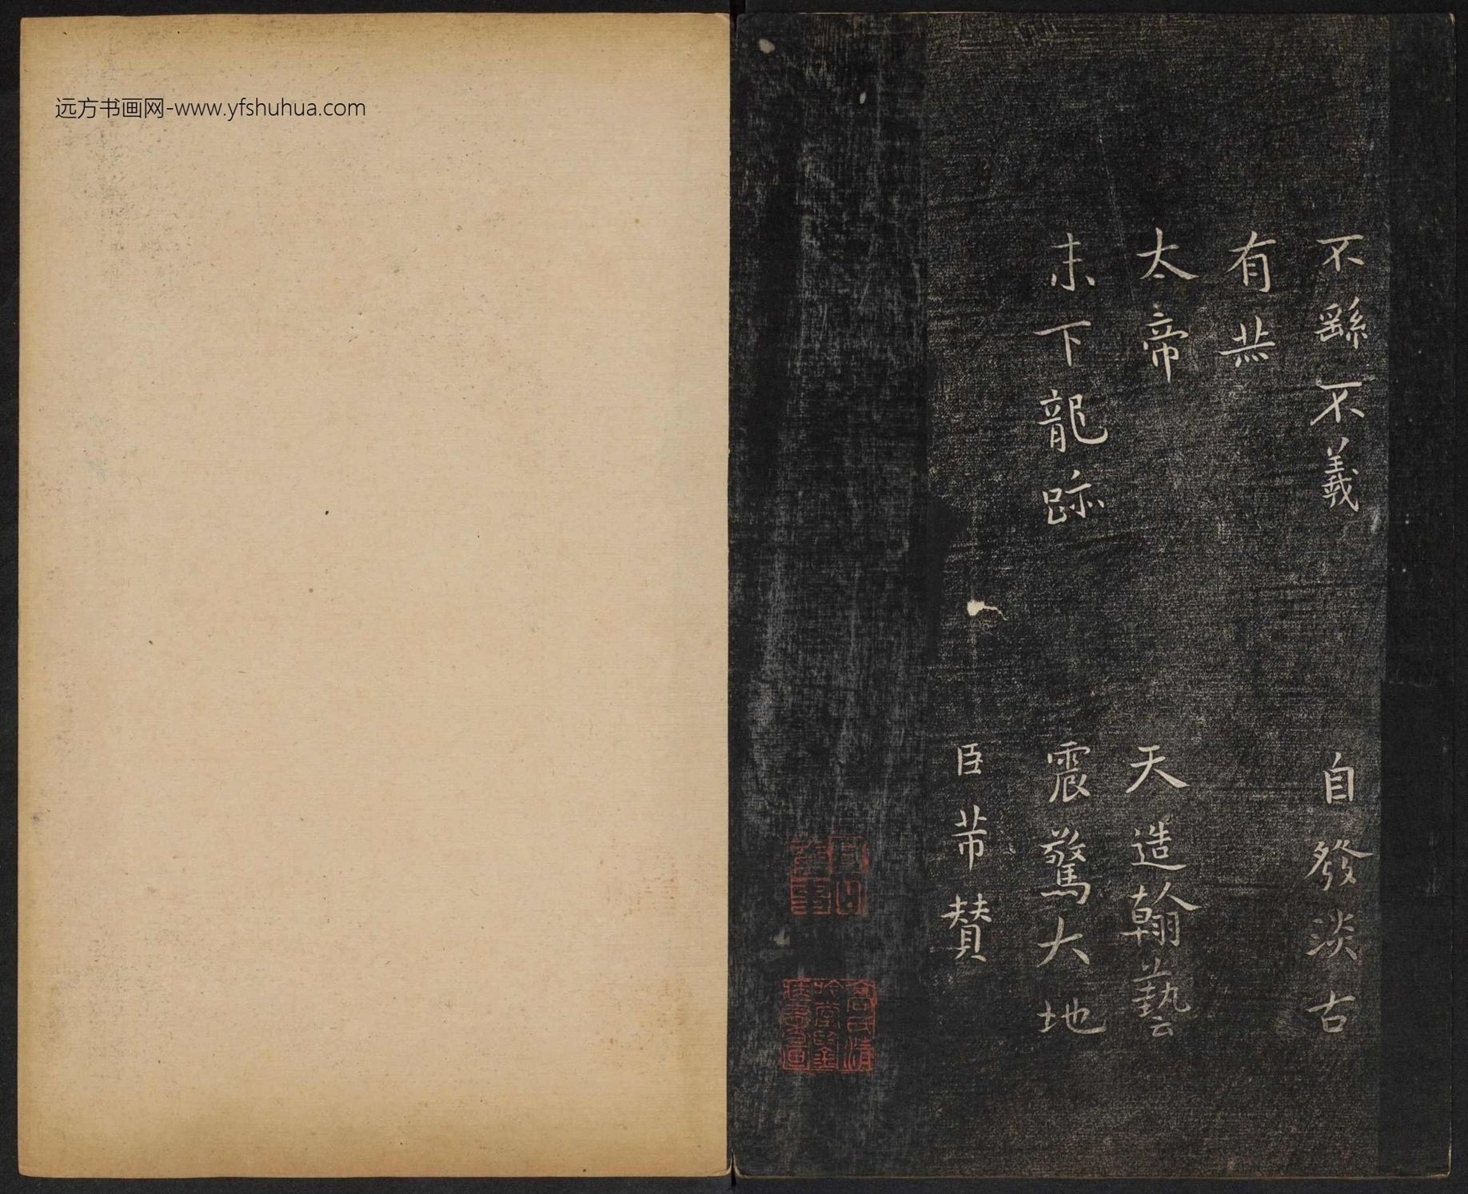 远方书画网-www.yfshuhua.com
不繇不羲 自發淡古
有
太帝 天造翰藝
末下龍跡 震驚大地
臣芾贊